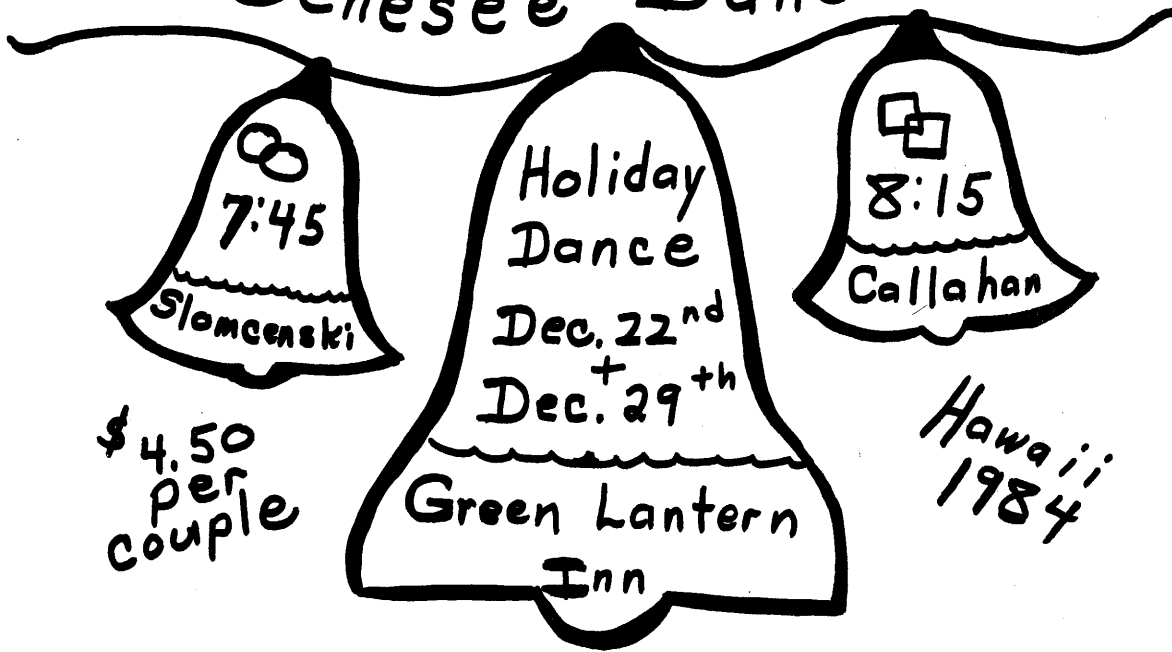 Genesee
7:45
Slomcenski
Holiday
Dance
Dec. 22nd
+
Dec. 29th
Green Lantern
Inn
8:15
Callahan
$4.50
per
couple
Hawaii
1984